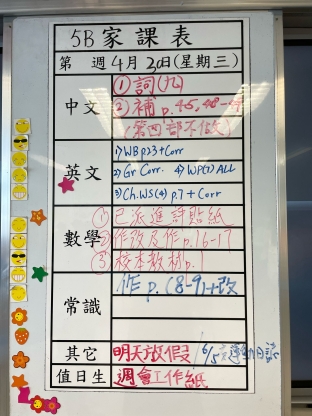 5B 家課表
第 週 4月20日(星期三)
中文
① 詞(九)
② 補 p.45,48-
(第四部不做)
英文
1) WB p23 + Corr
2) Gr Corr. 4) WP(7) ALL
3) Ch.WS(4) p.7 + Corr
數學
① 已派進評貼紙
② 作改及作 p.16-17
③ 校本教材 p.1
常識
作 p.(8-9)+改
其它
明天放假 6/5
值日生
週會工作紙